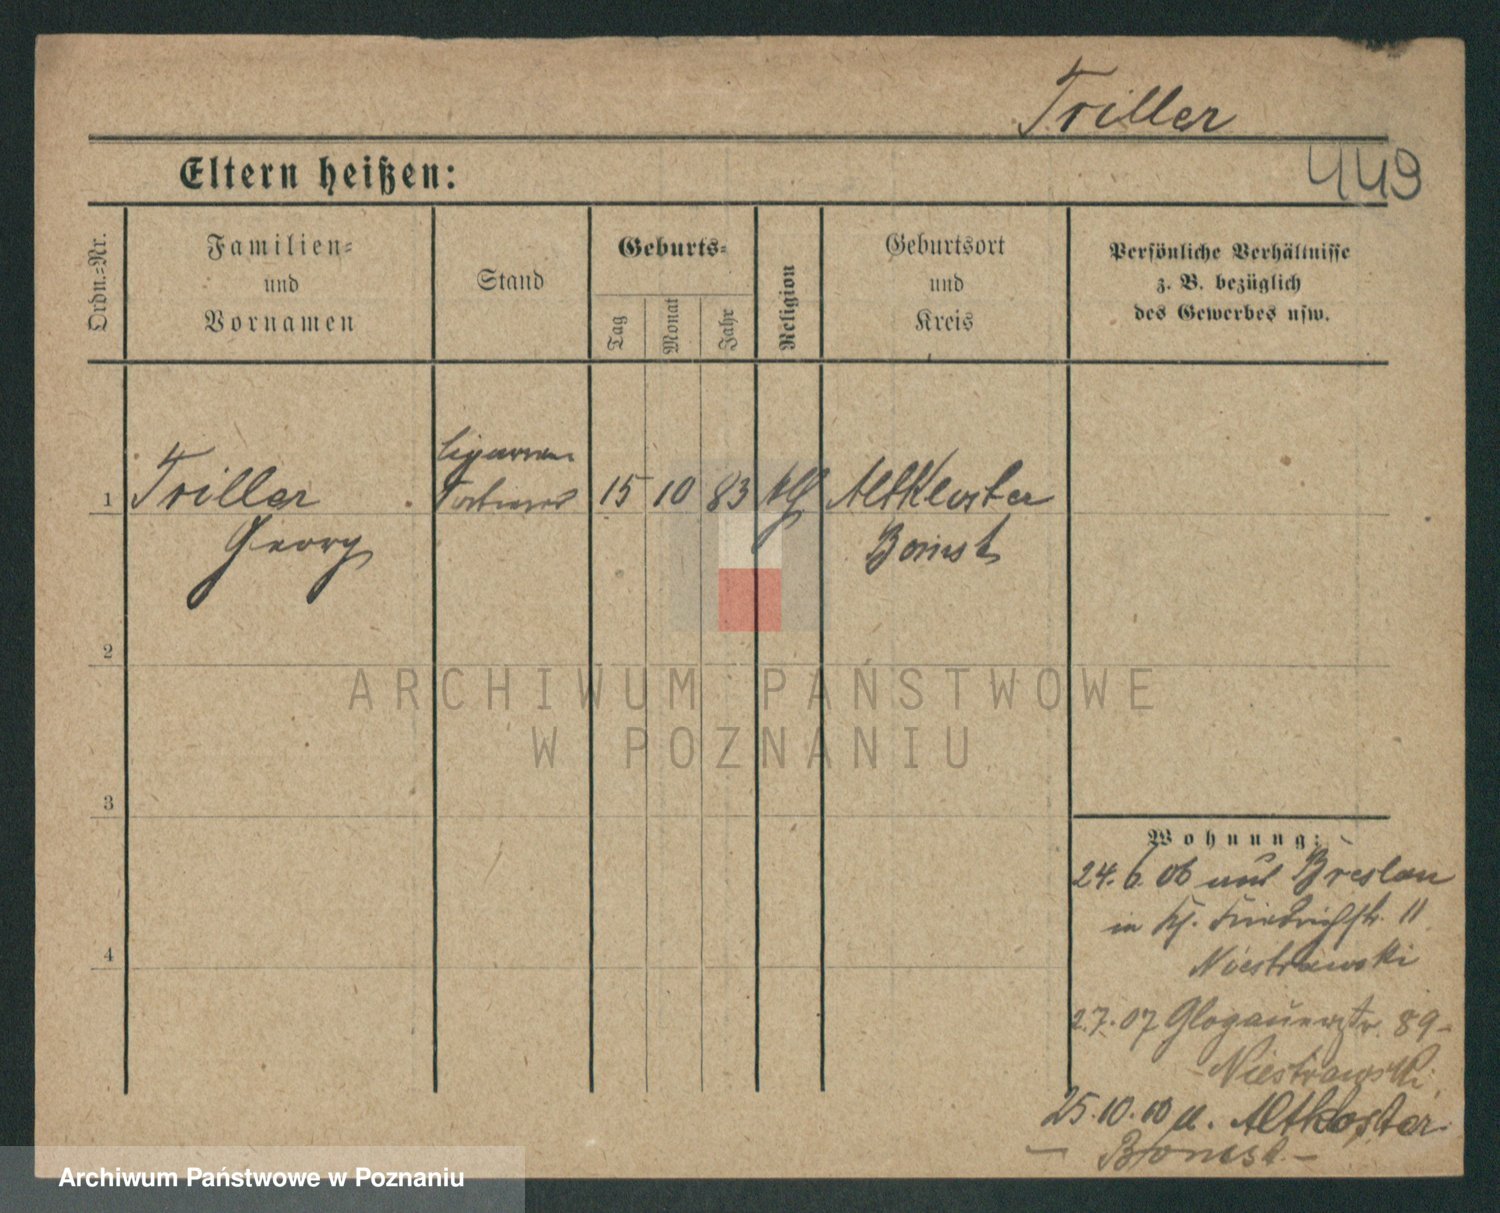 Triller
449
Eltern heißen:
Ordn.=Nr.
Familien=
und
Vornamen
Stand
Geburts=
Tag
Monat
Jahr
Religion
Geburtsort
und
Kreis
Persönliche Verhältnisse
z. B. bezüglich
des Gewerbes usw.
Cigarren
1 Triller 15 10 83 Altkloster
Georg Bomst
2
3
4
Wohnung:
24. 6. 06 aus Breslau
in Kl. Friedrichstr. 11
Niestrawski
2.7.07 Glogauerstr. 89-
Niestrawski
25.10. Altkloster
Bomst.-
ARCHIWUM PAŃSTWOWE
W POZNANIU
Archiwum Państwowe w Poznaniu